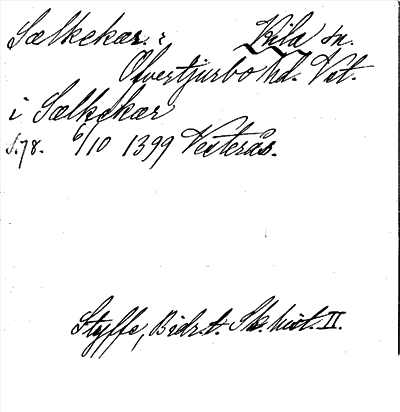 Sælkekær. : Kila sn.
Ofvertjurbo hd. Vst.
i Sælkekær
S.78. 6/10 1399 Vesterås.
Styffe, Bidr. t. Sk. hist. II.